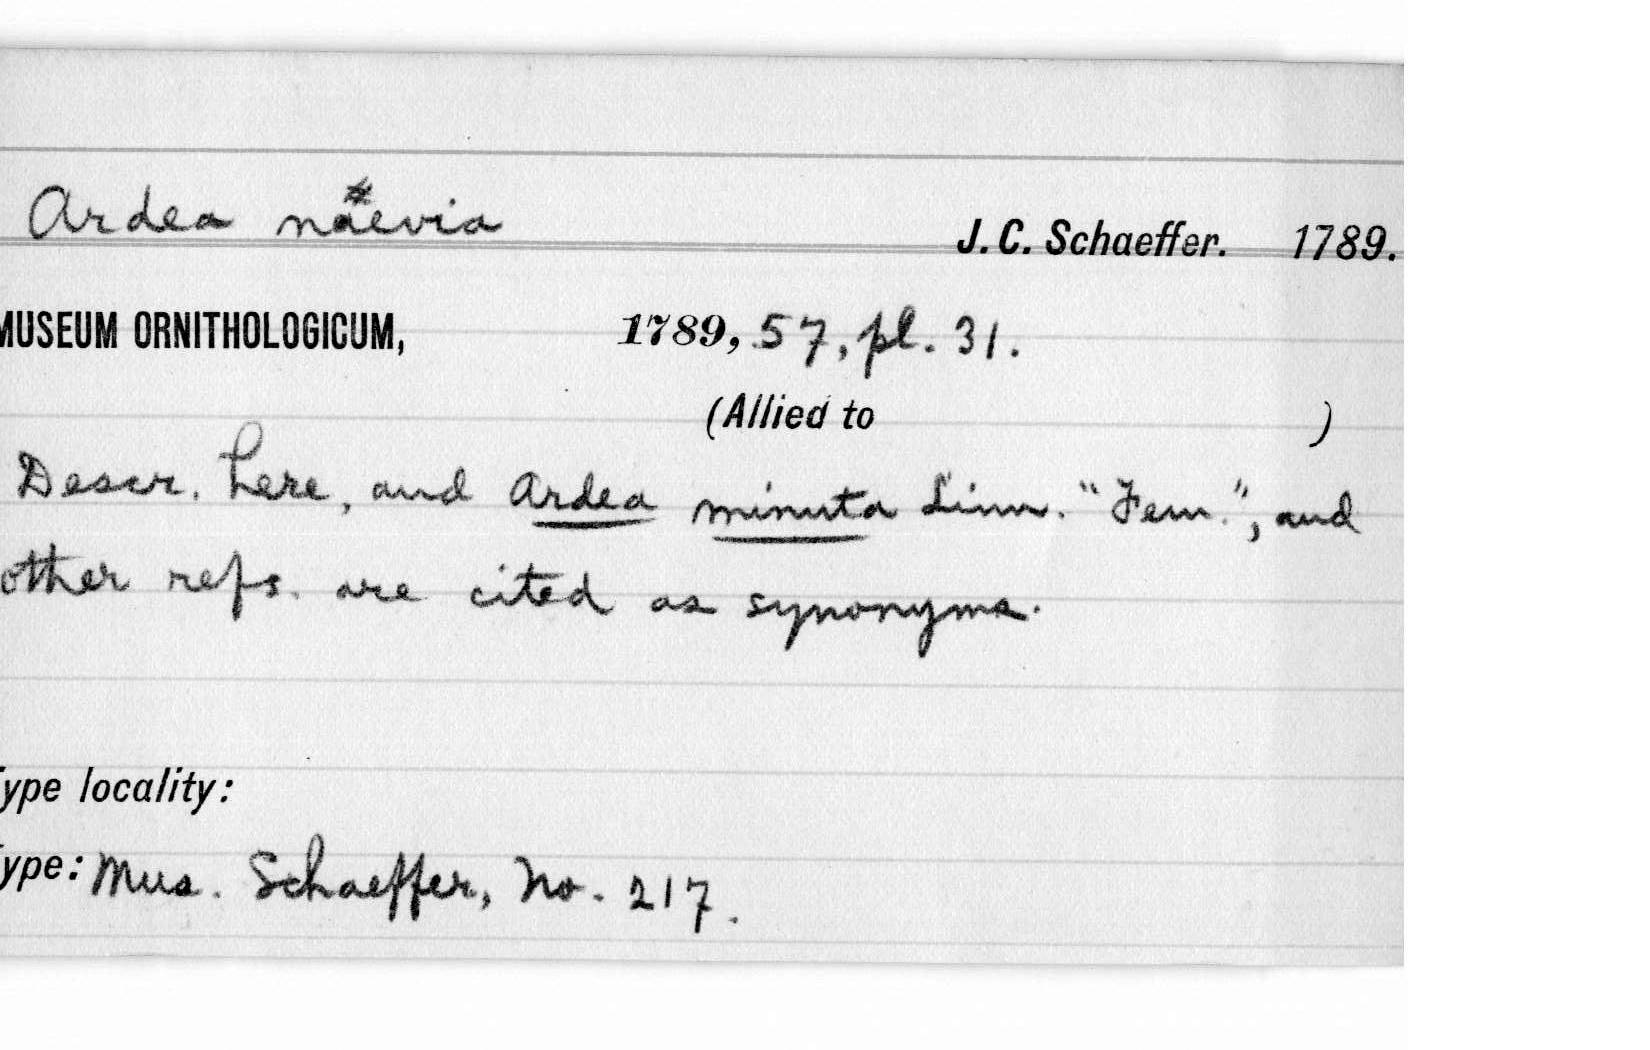 Ardea naevia
J. C. Schaeffer. 1789.
MUSEUM ORNITHOLOGICUM, 1789, 57, pl. 31.
(Allied to )
Descr. here, and Ardea minuta Linn. "Fem.", and
other refs. are cited as synonyms.
ype locality:
ype: Mus. Schaeffer, No. 217.